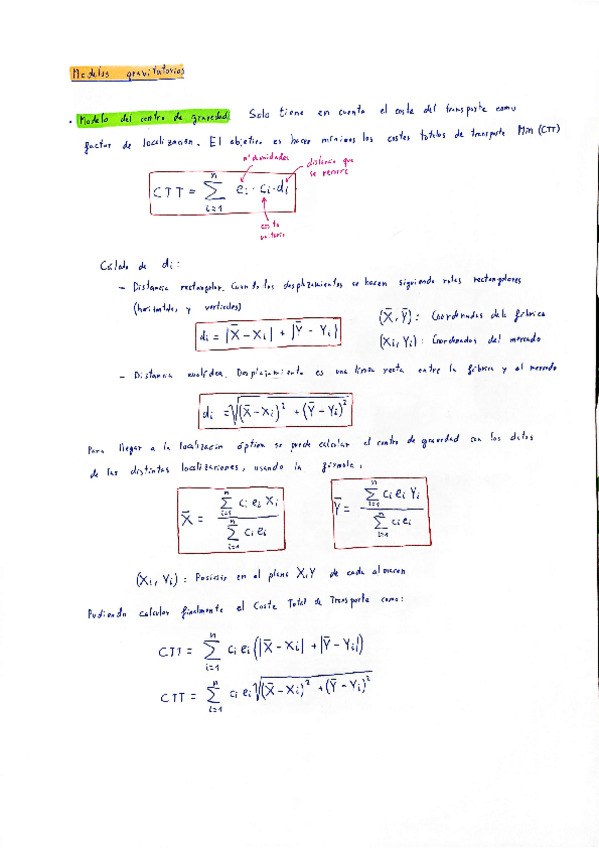 Modelos gravitatorios
· Modelo del centro de gravedad: Solo tiene en cuenta el coste del transporte como
factor de localización. El objetivo es hacer mínimos los costes totales de transporte Min (CTT)
nº de unidades
distancia que
se recorre
CTT = ∑_{i=1}^{n} e_i · c_i · d_i
coste
unitario
Cálculo de d_i:
- Distancia rectangular. Cuando los desplazamientos se hacen siguiendo rutas rectangulares
(horizontales y verticales)
d_i = |X̄ - X_i| + |Ȳ - Y_i|
(X̄, Ȳ): Coordenadas de la fábrica
(X_i, Y_i): Coordenadas del mercado
- Distancia euclídea. Desplazamiento es una línea recta entre la fábrica y el mercado
d_i = √((X̄ - X_i)² + (Ȳ - Y_i)²)
Para llegar a la localización óptima se puede calcular el centro de gravedad con los datos
de las distintas localizaciones, usando la fórmula:
X̄ = ∑_{i=1}^{n} c_i e_i X_i / ∑_{i=1}^{n} c_i e_i
Ȳ = ∑_{i=1}^{n} c_i e_i Y_i / ∑_{i=1}^{n} c_i e_i
(X_i, Y_i): Posición en el plano X,Y de cada almacen
Pudiendo calcular finalmente el Coste Total de Transporte como:
CTT = ∑_{i=1}^{n} c_i e_i (|X̄ - X_i| + |Ȳ - Y_i|)
CTT = ∑_{i=1}^{n} c_i e_i √((X̄ - X_i)² + (Ȳ - Y_i)²)